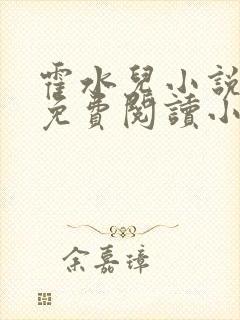 霍水兒小說
免費閱讀小
余嘉璋